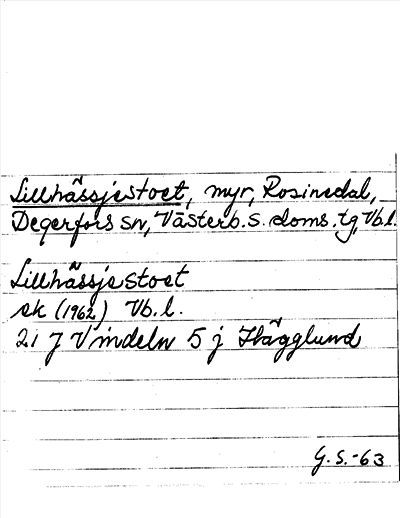 Lillhässjestoet, myr, Rosinedal,
Degerfors sn, Västerb. s. doms. tg, Vb.l.
Lillhässjestoet
ek (1962) Vb.l.
21 J Vindeln 5 j Hägglund
G.S.-63